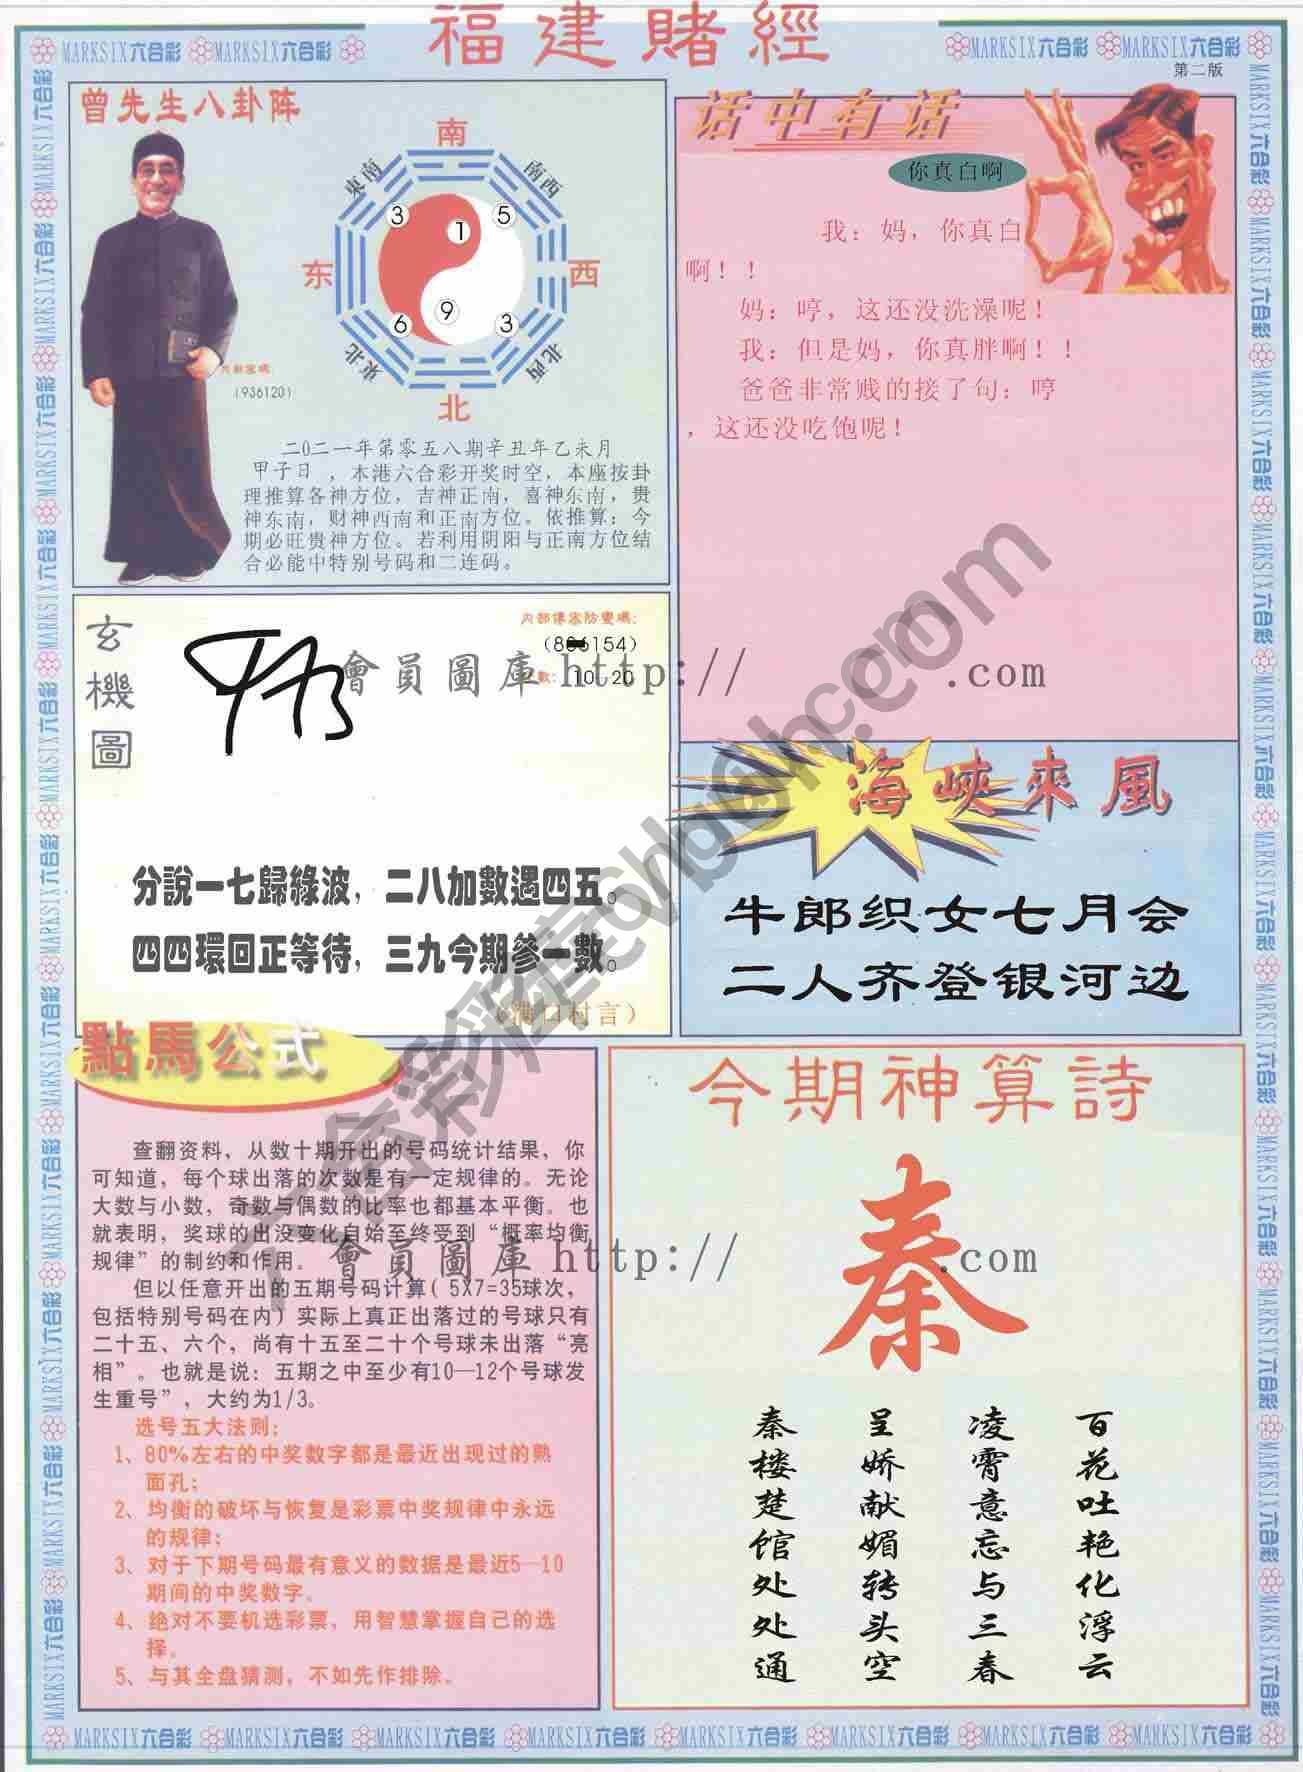 福建賭經
MARKSIX六合彩 MARKSIX六合彩
MARKSIX六合彩 MARKSIX六合彩
第二版
曾先生八卦阵
南
東南
南西
3
1
5
东
西
6
9
3
東北
北西
北
(936120)
二0二一年第零五八期辛丑年乙未月
甲子日，本港六合彩开奖时空，本座按卦
理推算各神方位，吉神正南，喜神东南，贵
神东南，财神西南和正南方位。依推算：今
期必旺贵神方位。若利用阴阳与正南方位结
合必能中特别号码和二连码。
话中有话
你真白啊
我：妈，你真白
啊！！
妈：哼，这还没洗澡呢！
我：但是妈，你真胖啊！！
爸爸非常贱的接了句：哼
，这还没吃饱呢！
玄機圖
154)
10. 20
會員圖庫 http:// .com
分說一七歸綠波，二八加數遇四五。
四四環回正等待，三九今期參一數。
村言）
海峽來風
牛郎织女七月会
二人齐登银河边
點馬公式
查翻资料，从数十期开出的号码统计结果，你
可知道，每个球出落的次数是有一定规律的。无论
大数与小数，奇数与偶数的比率也都基本平衡。也
就表明，奖球的出没变化自始至终受到“概率均衡
规律”的制约和作用。
但以任意开出的五期号码计算(5X7=35球次，
包括特别号码在内)实际上真正出落过的号球只有
二十五、六个，尚有十五至二十个号球未出落“亮
相”。也就是说：五期之中至少有10—12个号球发
生重号”，大约为1/3。
选号五大法则：
1、80%左右的中奖数字都是最近出现过的熟
面孔；
2、均衡的破坏与恢复是彩票中奖规律中永远
的规律；
3、对于下期号码最有意义的数据是最近5—10
期间的中奖数字。
4、绝对不要机选彩票，用智慧掌握自己的选
择。
5、与其全盘猜测，不如先作排除。
會員圖庫 http:// .com
今期神算詩
秦
百花吐艳化浮云
凌霄意忘与三春
呈娇献媚转头空
秦楼楚馆处处通
MARKSIX六合彩 MARKSIX六合彩 MARKSIX六合彩 MARKSIX六合彩 MARKSIX六合彩 MARKSIX六合彩 MARKSIX六合彩 MARKSIX六合彩